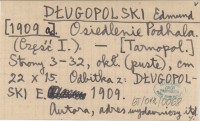 DŁUGOPOLSKI Edmund
[1909 a] Osiedlenie Podhala.
(Część I.). — [Tarnopol.]
Strony 3-32, okł. (puste), cm
22 x 15. Odbitka z: DŁUGOPOL-
SKI E. 1909.
Autora, adres wydawniczy itd.